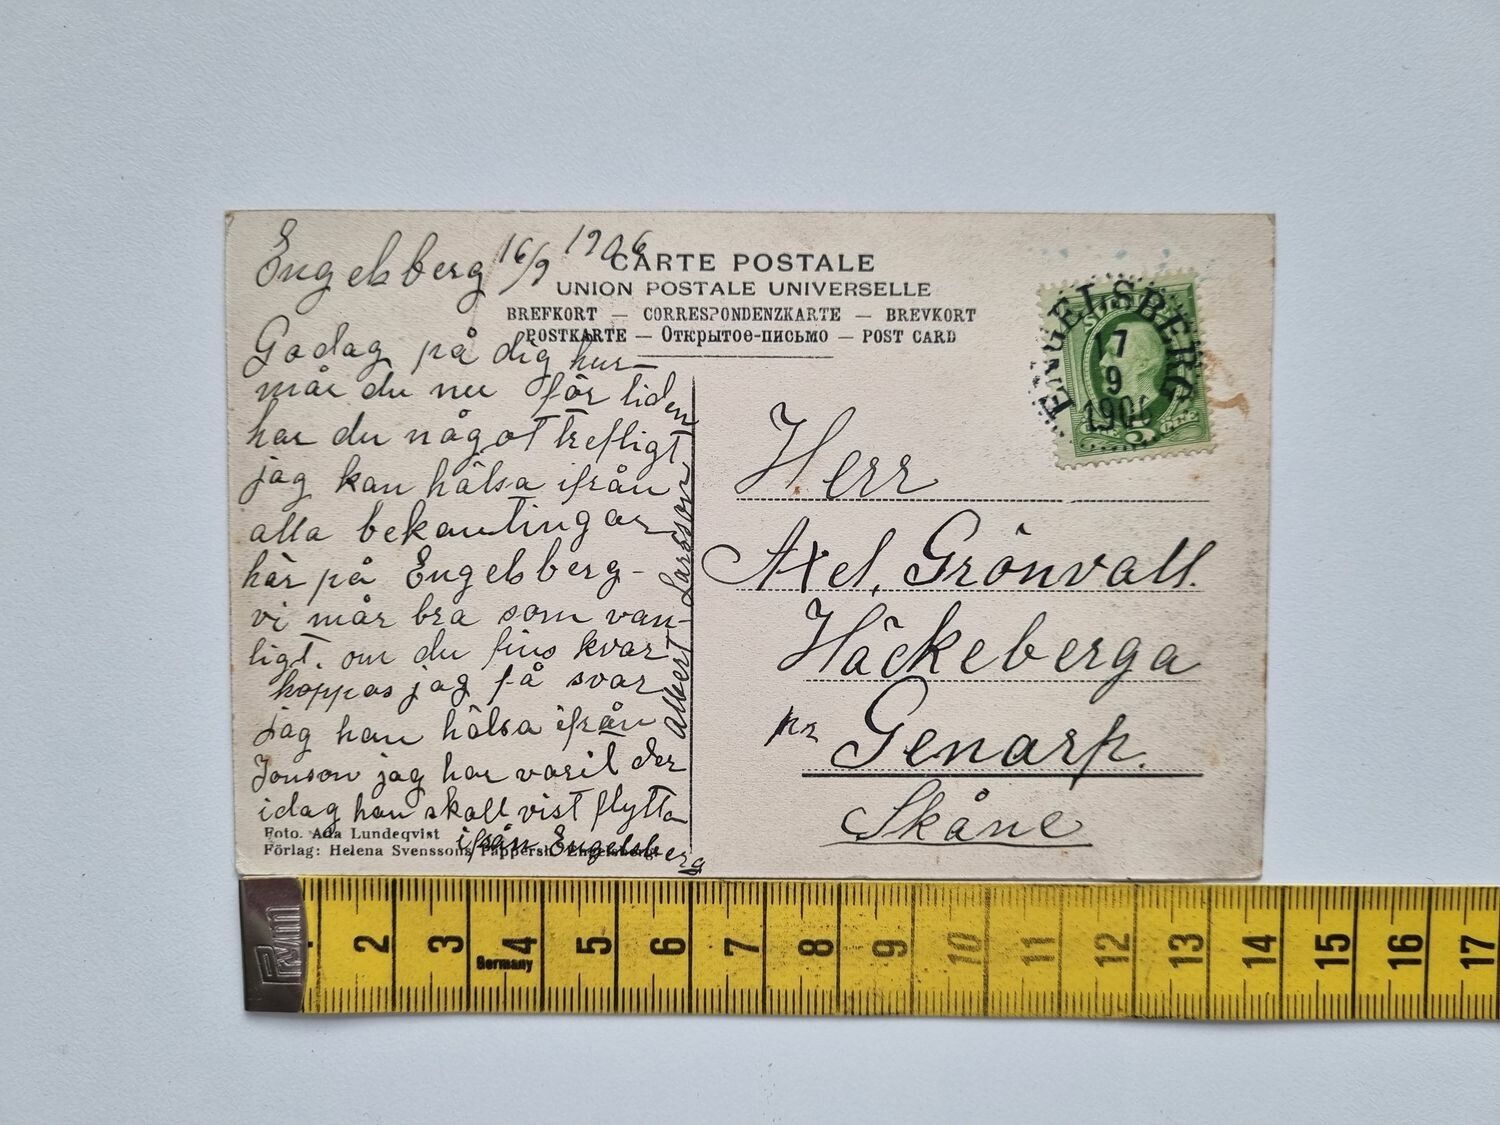 Engelsberg 16/9 1906
CARTE POSTALE
UNION POSTALE UNIVERSELLE
BREFKORT — CORRESPONDENZKARTE — BREVKORT
POSTKARTE — Открытое-письмо — POST CARD
Godag på dig hur
mår du nu för tiden
har du något trefligt
jag kan hälsa ifrån
alla bekantingar
här på Engelsberg-
vi mår bra som van-
ligt. om du fins kvar
hoppas jag få svar
jag kan hälsa ifrån
Jonson jag har varit der
idag han skall vist flytta
ifrån Engelsberg
Albert Larsson
Foto. Ada Lundeqvist
Förlag: Helena Svenssons Pappersh. Engelsberg.
ENGELSBERG
17
9
1906
Herr
Axel. Grönvall.
Häckeberga
pr Genarp.
Skåne
Pym
2 3 4 5 6 7 8 9 10 11 12 13 14 15 16 17
Germany